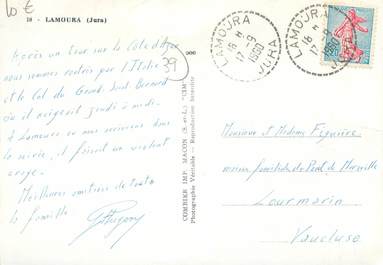 10 €
18 - LAMOURA (Jura)
Après un tour sur la Côte d'Azur
nous sommes rentrés par l'Italie
et le Col du Grand Saint Bernard
où il neigeait jeudi à midi.
A Lamoura où nous arrivions dans
la soirée, il faisait un violent
orage.
Meilleures amitiés de toute
la famille
39
COMBIER IMP. MACON (S.-et-L.) "CIM"
Photographie Véritable - Reproduction Interdite
LAMOURA
18 H
17 - 9
1960
JURA
LAMOURA
18 H
17 - 9
1960
JURA
Monsieur et Madame Figuière
Pont de Marseille
Lourmarin
Vaucluse